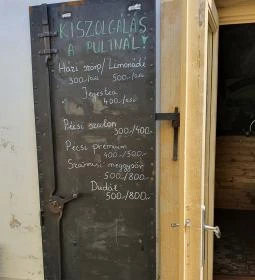 KISZOLGÁLÁS
A PULTNÁL!
Házi szörp/Limonádé
300/ 500/
Jegestea
400/
Pécsi szalon
300/400.-
Pécsi prémium
400/500.-
Szamosi meggysör
500/800.-
Dudás
500/800.-